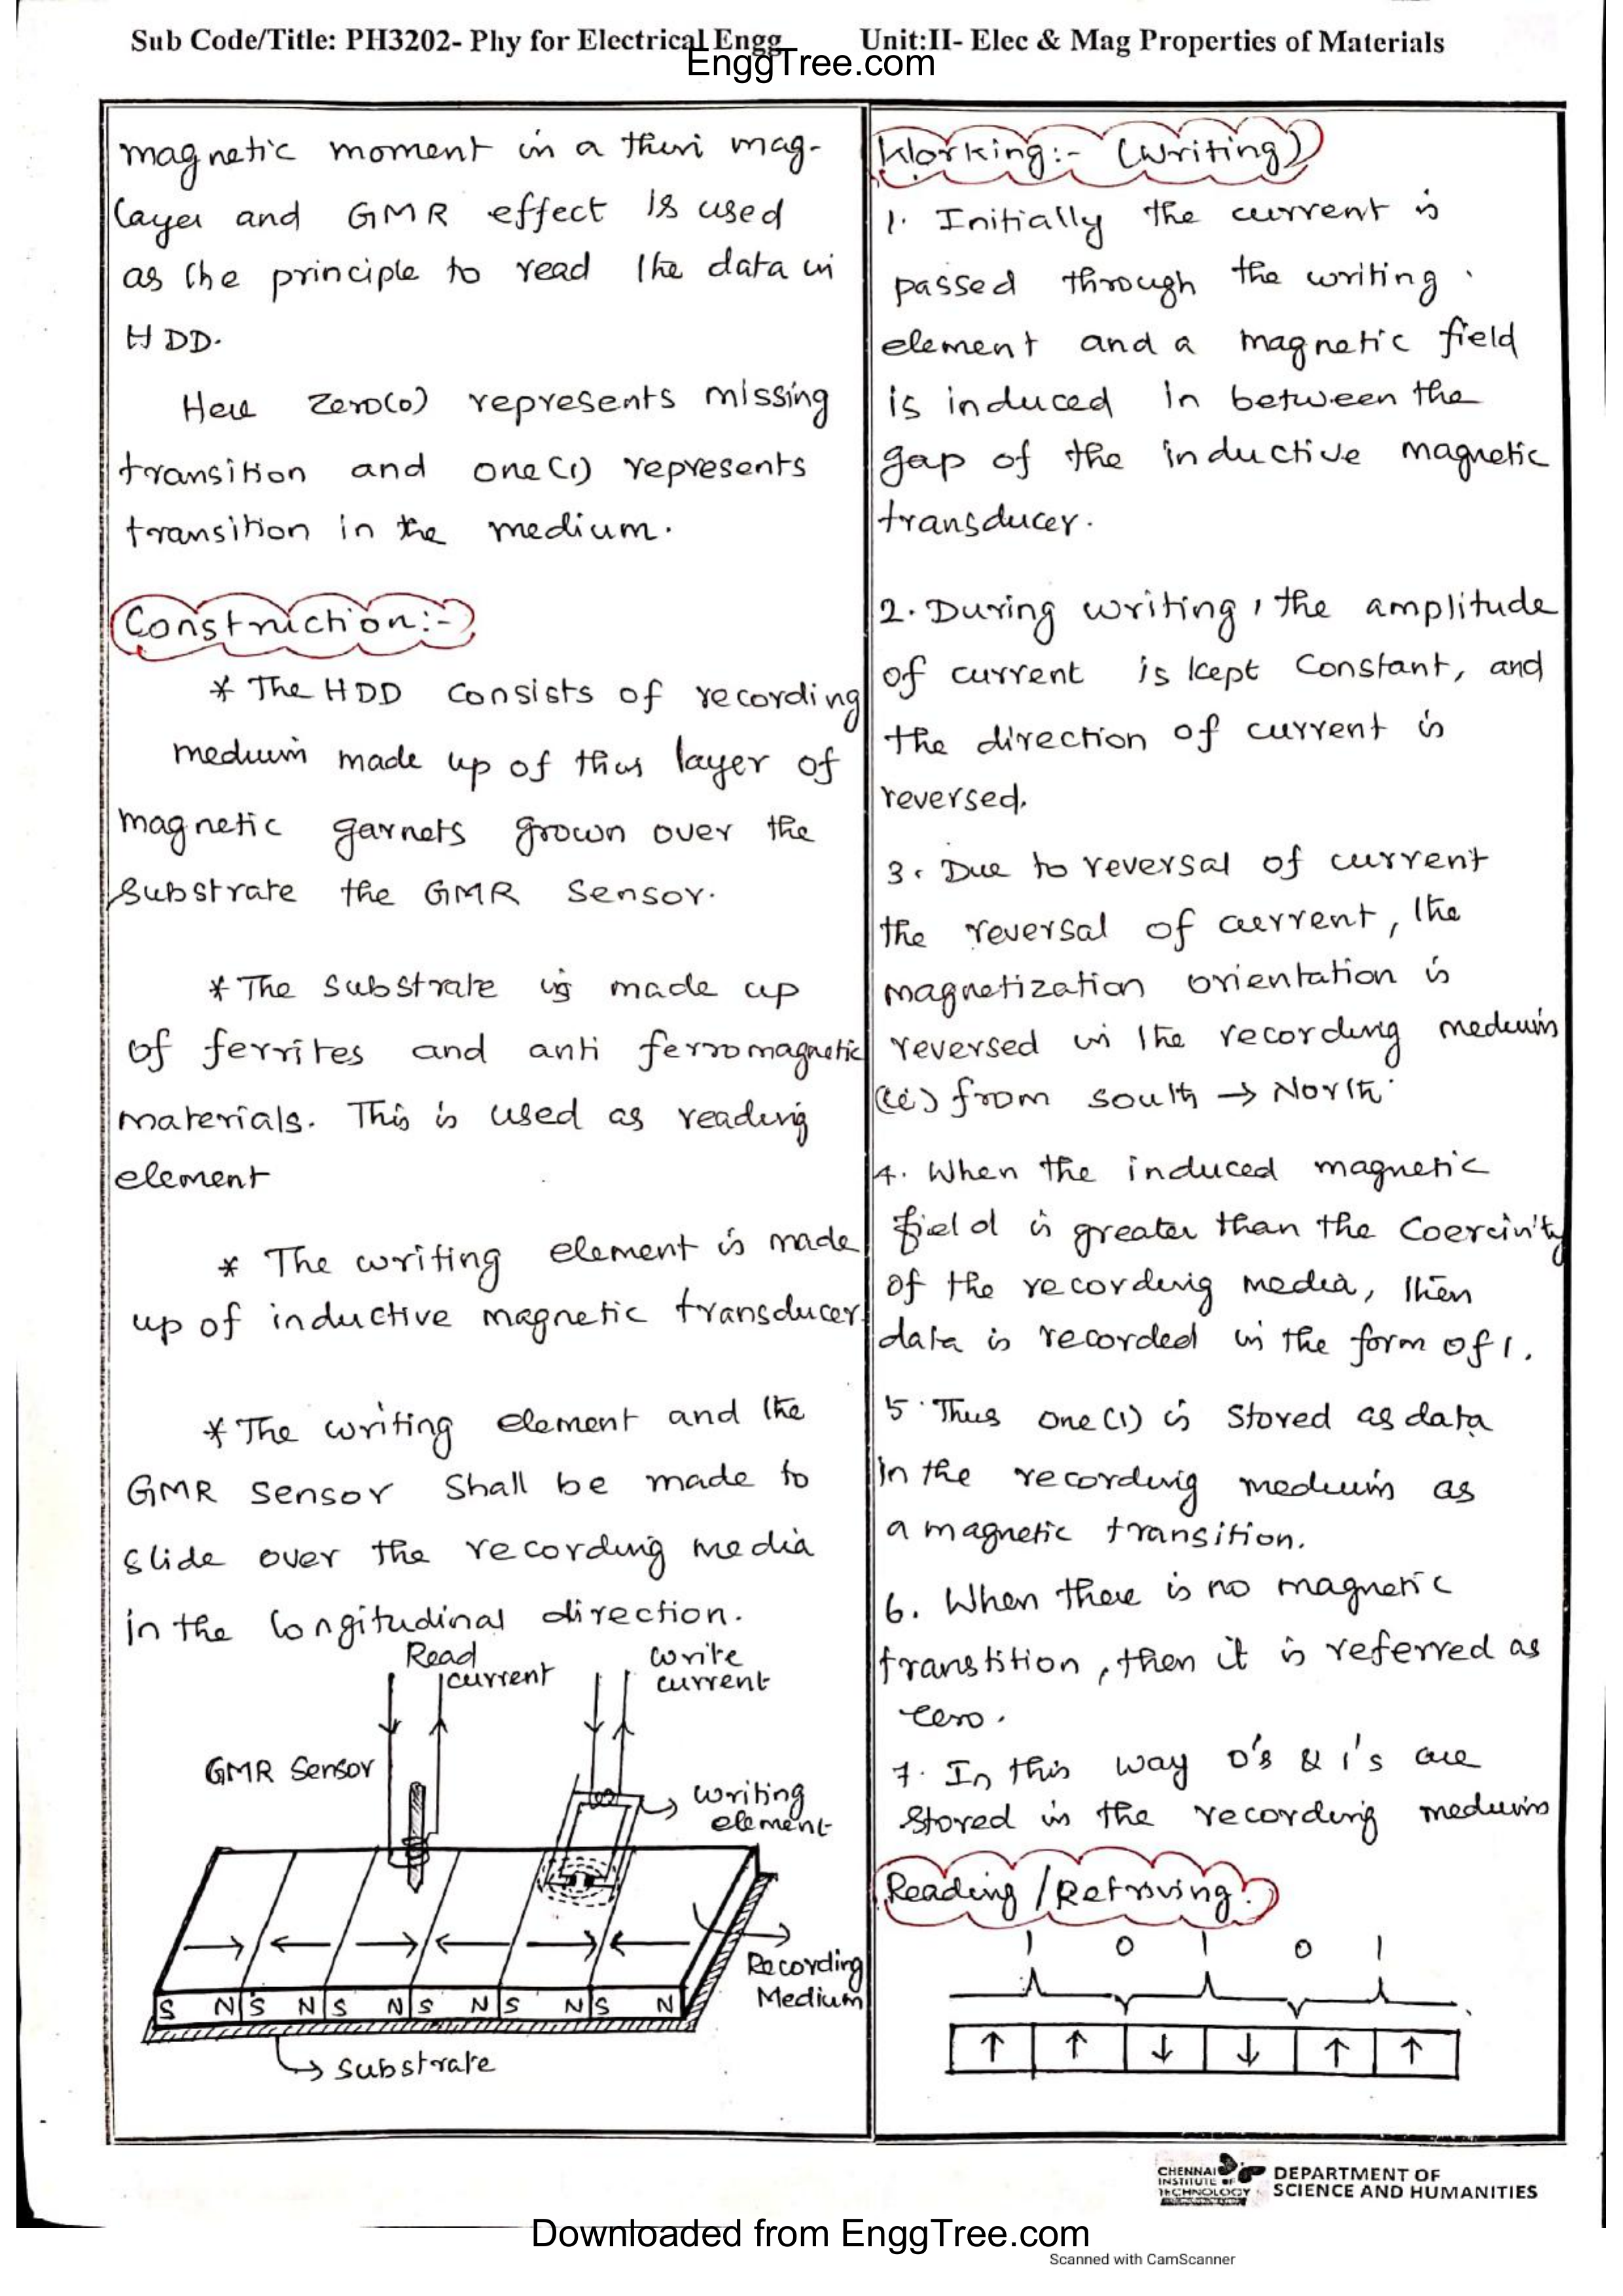 Sub Code/Title: PH3202- Phy for Electrical Engg Unit:II- Elec & Mag Properties of Materials
EnggTree.com
magnetic moment in a thin mag-
layer and GMR effect is used
as the principle to read the data in
HDD.
Here zero(0) represents missing
transition and one(1) represents
transition in the medium.
Construction:-
* The HDD consists of recording
medium made up of thin layer of
magnetic garnets grown over the
substrate the GMR sensor.
* The substrate is made up
of ferrites and anti ferromagnetic
materials. This is used as reading
element
* The writing element is made
up of inductive magnetic transducer.
* The writing element and the
GMR sensor shall be made to
slide over the recording media
in the longitudinal direction.
Read
current
write
current
GMR Sensor
writing
element
Recording
Medium
S N S N S N S N S N S N
substrate
Working:- (Writing)
1. Initially the current is
passed through the writing
element and a magnetic field
is induced in between the
gap of the inductive magnetic
transducer.
2. During writing, the amplitude
of current is kept constant, and
the direction of current is
reversed.
3. Due to reversal of current
the reversal of current, the
magnetization orientation is
reversed in the recording medium
(ie) from south → North.
4. When the induced magnetic
field is greater than the coercivity
of the recording media, then
data is recorded in the form of 1.
5. Thus one(1) is stored as data
in the recording medium as
a magnetic transition.
6. When there is no magnetic
transtition, then it is referred as
zero.
7. In this way 0's & 1's are
stored in the recording medium
Reading/Retriving.
1 0 1 0 1
↑ ↑ ↓ ↓ ↑ ↑
CHENNAI
INSTITUTE OF
TECHNOLOGY
DEPARTMENT OF
SCIENCE AND HUMANITIES
Downloaded from EnggTree.com
Scanned with CamScanner